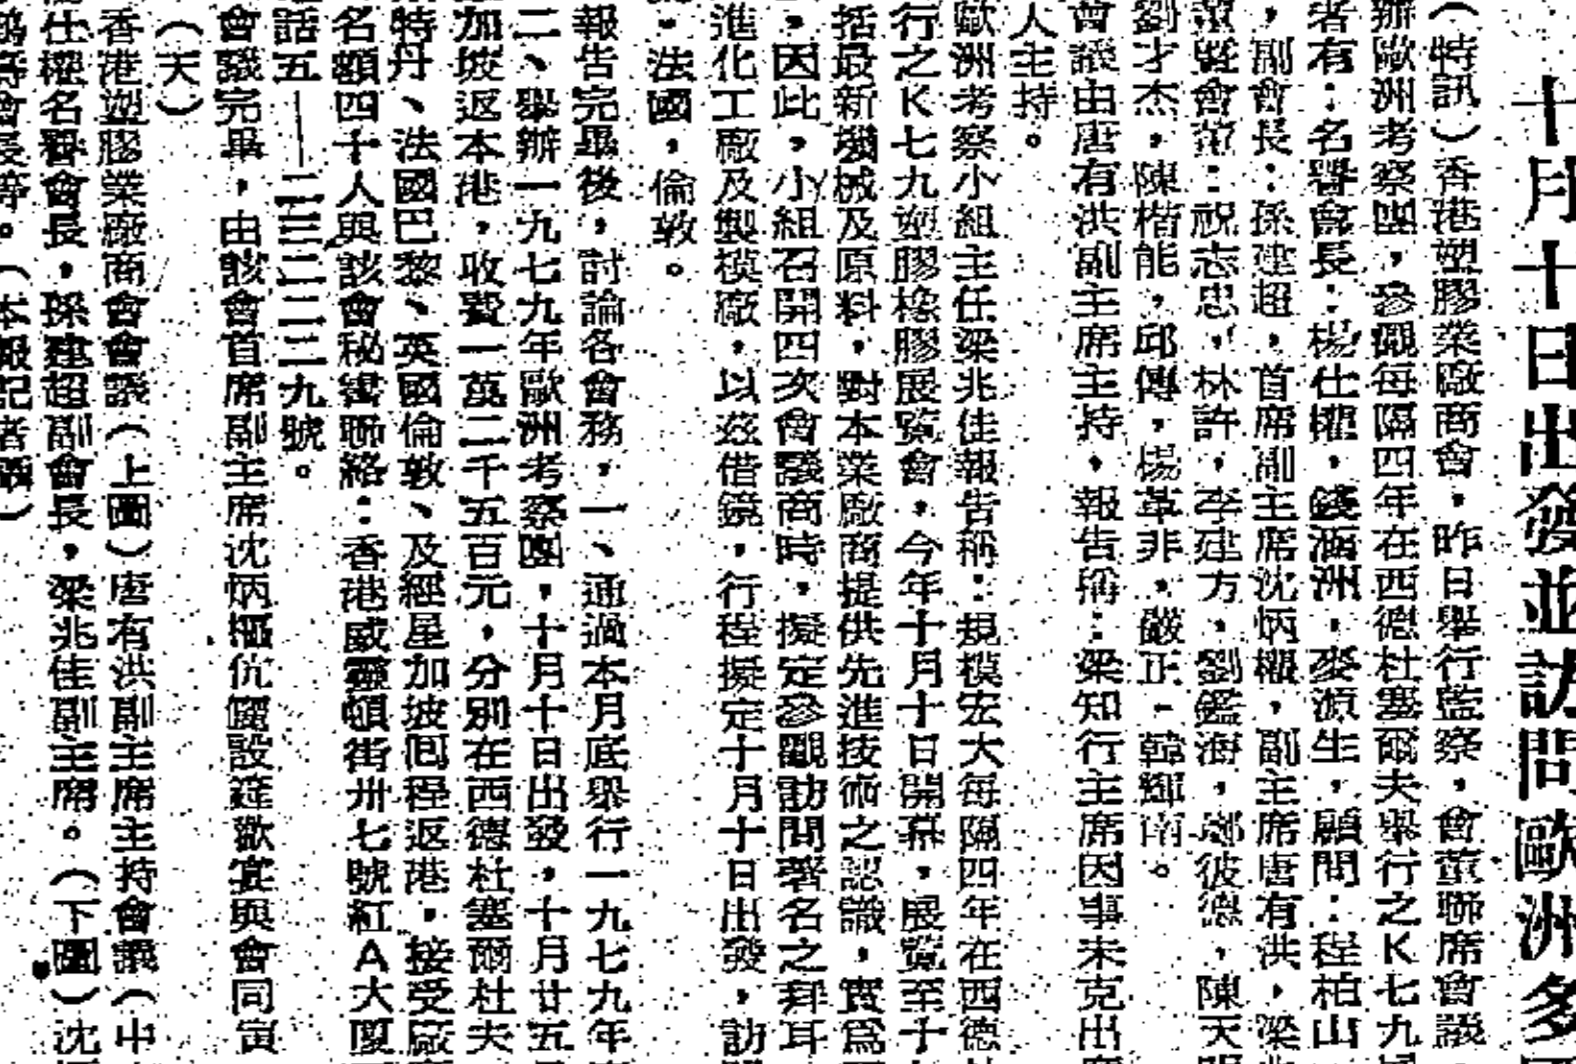 十月十日出發並訪問歐洲多
（特訊）香港塑膠業廠商會，昨日舉行監察，會董聯席會議，
辦歐洲考察團，參觀每隔四年在西德杜塞爾夫舉行之K七九
者有：名譽會長：楊仕櫂，錢涵洲，麥源生，顧問：程柏山
，副會長：孫建超，首席副主席沈炳櫂，副主席唐有洪，梁
會董：祝志忠，林許，李建方，劉鑑海，鄔彼德，陳天
劉才杰，陳楷能，邱傳，楊革非，嚴正，韓輝南。
會議由唐有洪副主席主持，報告稱：梁知行主席因事未克出
人主持。
歐洲考察小組主任梁兆佳報告稱：規模宏大每隔四年在西德
行之K七九塑膠橡膠展覽會，今年十月十日開幕，展覽至十
括最新機械及原料，對本業廠商提供先進技術之認識，實爲
，因此，小組召開四次會議商時，擬定參觀訪問著名之拜耳
進化工廠及製模廠，以茲借鏡，行程擬定十月十日出發，訪
，法國，倫敦。
報告完畢後，討論各會務，一、通過本月底舉行一九七九年
二、舉辦一九七九年歐洲考察團，十月十日出發，十月廿五
加坡返本港，收費一萬二千五百元，分別在西德杜塞爾杜夫
特丹、法國巴黎、英國倫敦、及經星加坡囘程返港，接受廠
名額四十人與該會秘書聯絡：香港威靈頓街卅七號紅A大廈
話五—二三二二二九號。
會議完畢，由該會首席副主席沈炳櫂伉儷設筵歡宴與會同寅
（天）
香港塑膠業廠商會會議（上圖）唐有洪副主席主持會議（中
仕櫂名譽會長，孫建超副會長，梁兆佳副主席。（下圖）沈
等會長等。（本報記者攝）